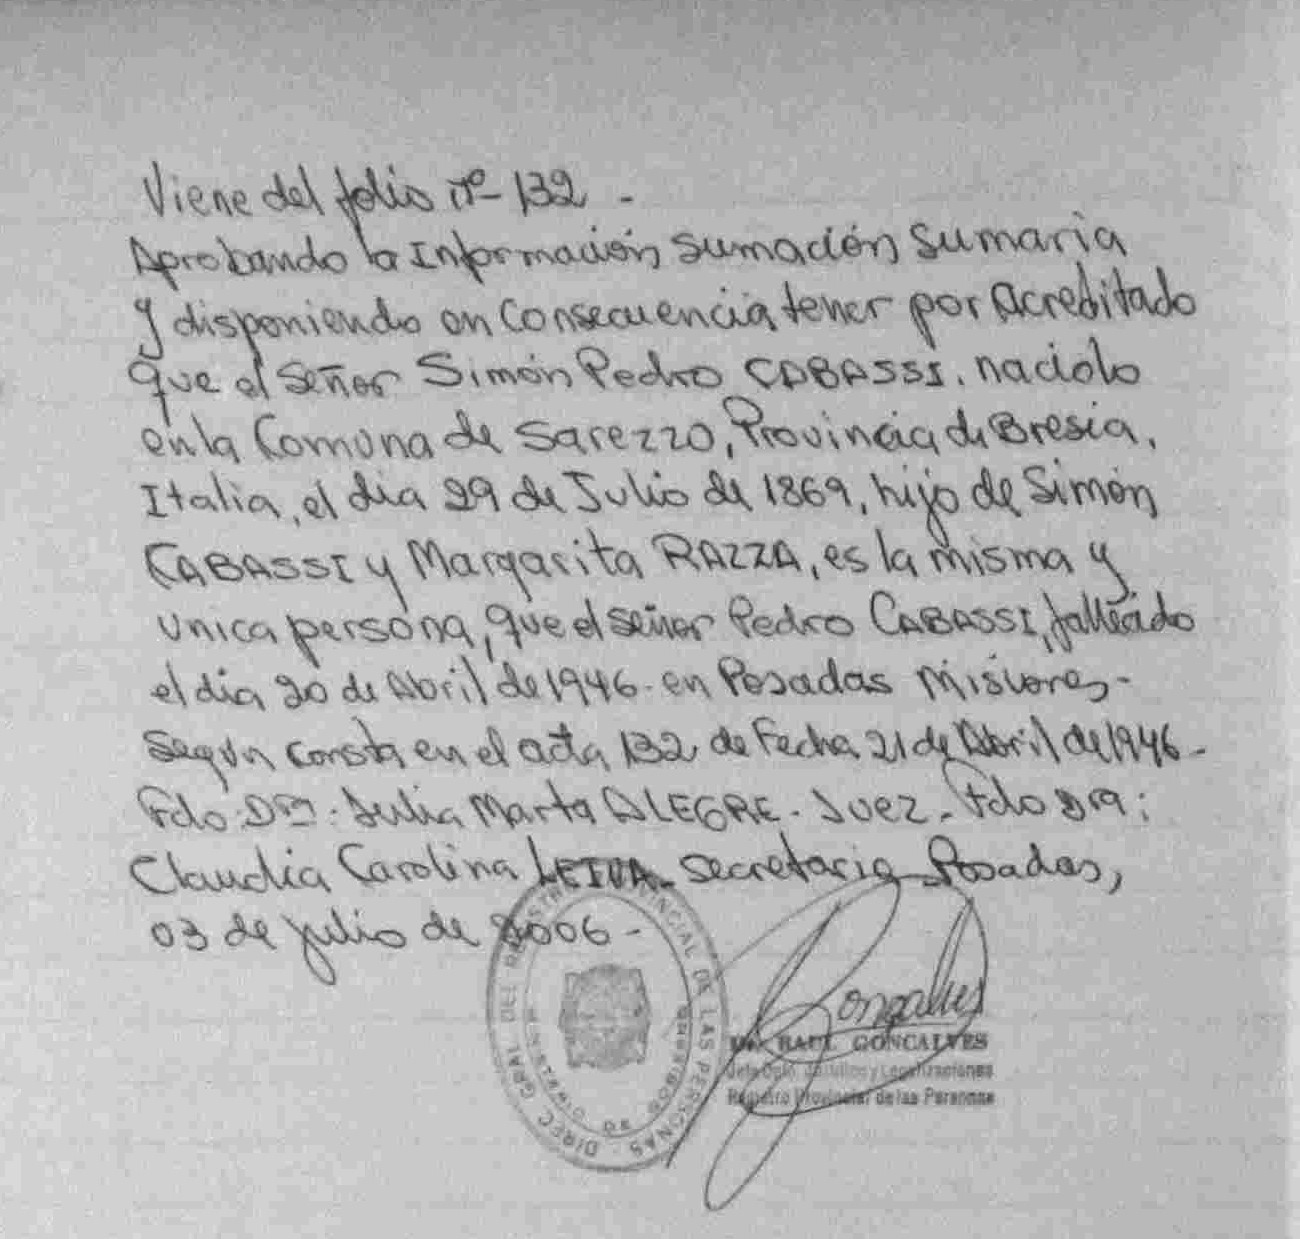 Viene del folio nº 132 -
Aprobando la Información sumación Sumaria
y disponiendo en Consecuencia, tener por Acreditado
Que el Señor Simón Pedro CABASSI. nacido
en la Comuna de Sarezzo, Provincia de Bresia,
Italia, el dia 29 de Julio de 1869, hijo de Simón
CABASSI y Margarita RAZZA, es la misma y
unica persona, que el señor Pedro CABASSI, fallecido
el dia 20 de Abril de 1946 - en Posadas Misiones -
Según consta en el acta 132 de Fecha 21 de Abril de 1946 -
Fdo: Dra: Julia Marta ALEGRE - Juez - Fdo Dra:
Claudia Carolina LEIVA - Secretaria Posadas,
03 de julio de 2006 -
DIREC. GRAL DEL REGISTRO PROVINCIAL DE LAS PERSONAS
Gonçalves
Dr. RAUL GONCALVES
Jefe Dpto. Jurídico y Legalizaciones
Registro Provincial de las Personas